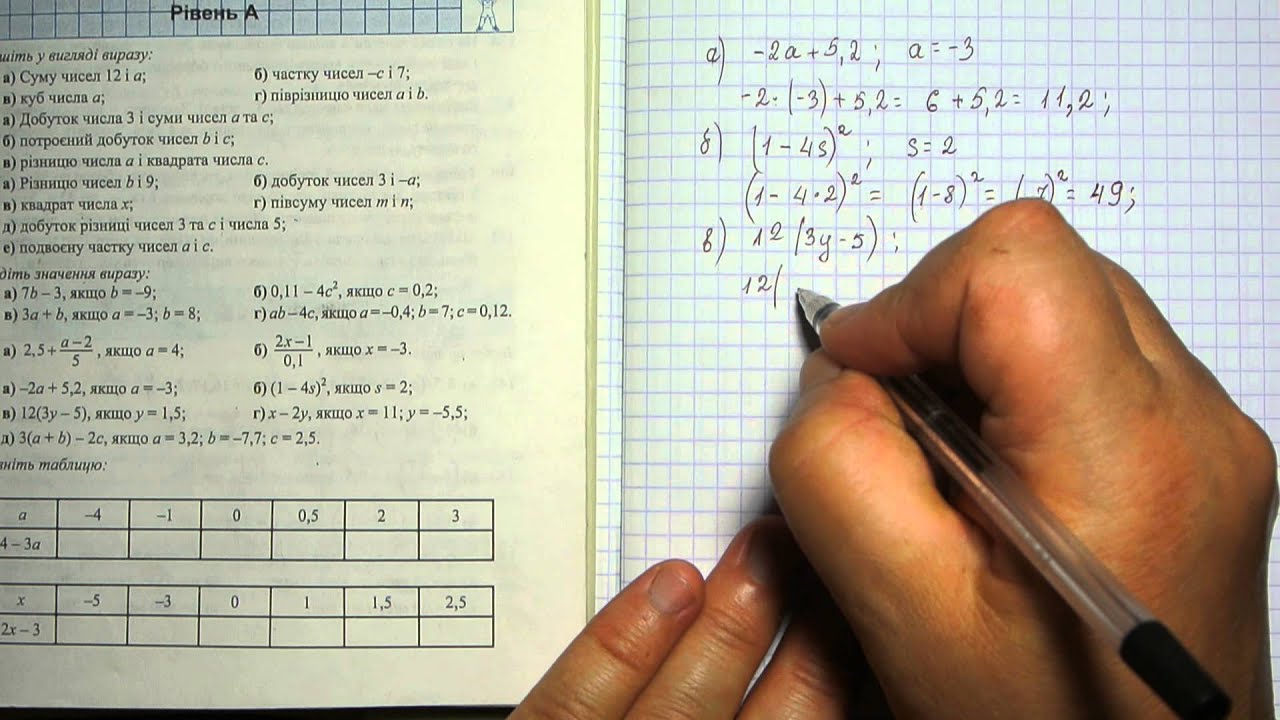 Рівень А
шіть у вигляді виразу:
а) Суму чисел 12 і a; б) частку чисел –c і 7;
в) куб числа a; г) піврізницю чисел a і b.
а) Добуток числа 3 і суми чисел a та c;
б) потроєний добуток чисел b і c;
в) різницю числа a і квадрата числа c.
а) Різницю чисел b і 9; б) добуток чисел 3 і –a;
в) квадрат числа x; г) півсуму чисел m і n;
д) добуток різниці чисел 3 та c і числа 5;
е) подвоєну частку чисел a і c.
діть значення виразу:
а) 7b – 3, якщо b = –9; б) 0,11 – 4c², якщо c = 0,2;
в) 3a + b, якщо a = –3; b = 8; г) ab – 4c, якщо a = –0,4; b = 7; c = 0,12.
а) 2,5 + (a – 2)/5, якщо a = 4; б) (2x – 1)/0,1, якщо x = –3.
а) –2a + 5,2, якщо a = –3; б) (1 – 4s)², якщо s = 2;
в) 12(3y – 5), якщо y = 1,5; г) x – 2y, якщо x = 11; y = –5,5;
д) 3(a + b) – 2c, якщо a = 3,2; b = –7,7; c = 2,5.
вніть таблицю:
a –4 –1 0 0,5 2 3
4 – 3a
x –5 –3 0 1 1,5 2,5
2x – 3
а) -2a + 5,2 ; a = -3
-2 · (-3) + 5,2 = 6 + 5,2 = 11,2 ;
б) (1 - 4s)² ; s = 2
(1 - 4 · 2)² = (1-8)² = (-7)² = 49 ;
в) 12 (3y - 5) ;
12(